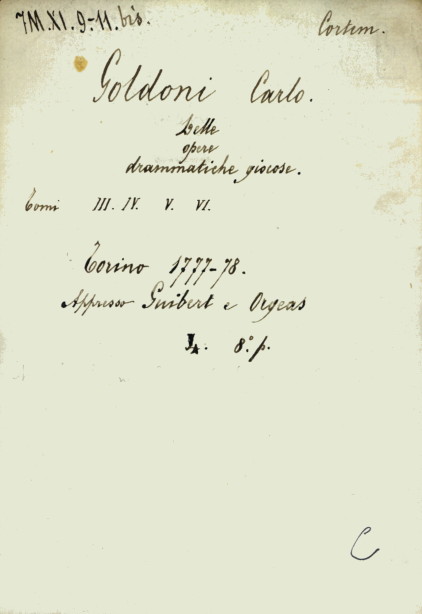 7M.XI.9-11.bis.
Cortem.
Goldoni Carlo.
Delle
opere
drammatiche giocose.
Tomi III. IV. V. VI.
Torino 1777-78.
Appresso Guibert e Orgeas
8.° p.
C